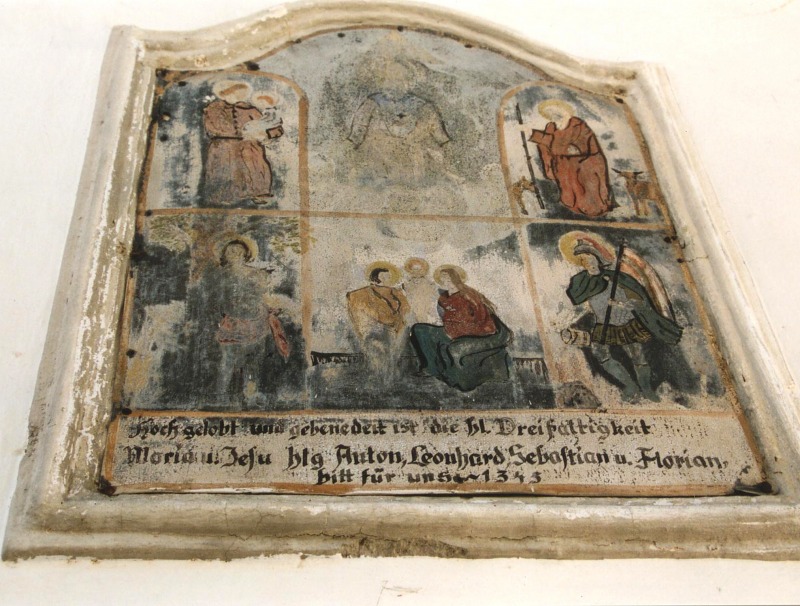 Hoch gelobt und gebenedeit ist die hl. Dreifaltigkeit
Maria u. Jesu hlg Anton, Leonhard Sebastian u. Florian,
bitt für uns